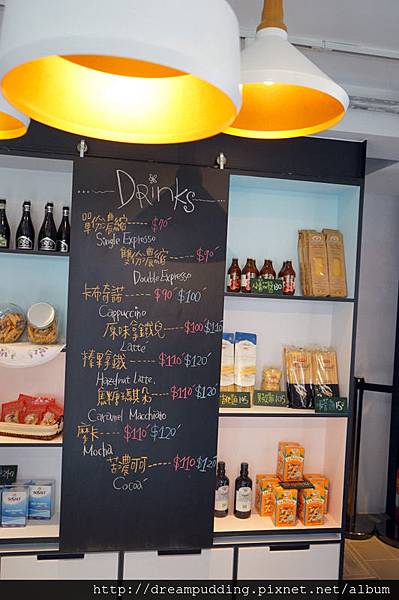 Drinks
單份濃縮 $70
Single Espresso
雙份濃縮 $90
Double Espresso
卡布奇諾 $90 $100
Cappuccino
原味拿鐵 $100 $110
Latte
榛果拿鐵 $110 $120
Hazelnut Latte
焦糖瑪琪朵 $110 $120
Caramel Macchiato
摩卡 $110 $120
Mocha
苦濃可可 $110 $120
Cocoa
http://dreampudding.pixnet.net/album